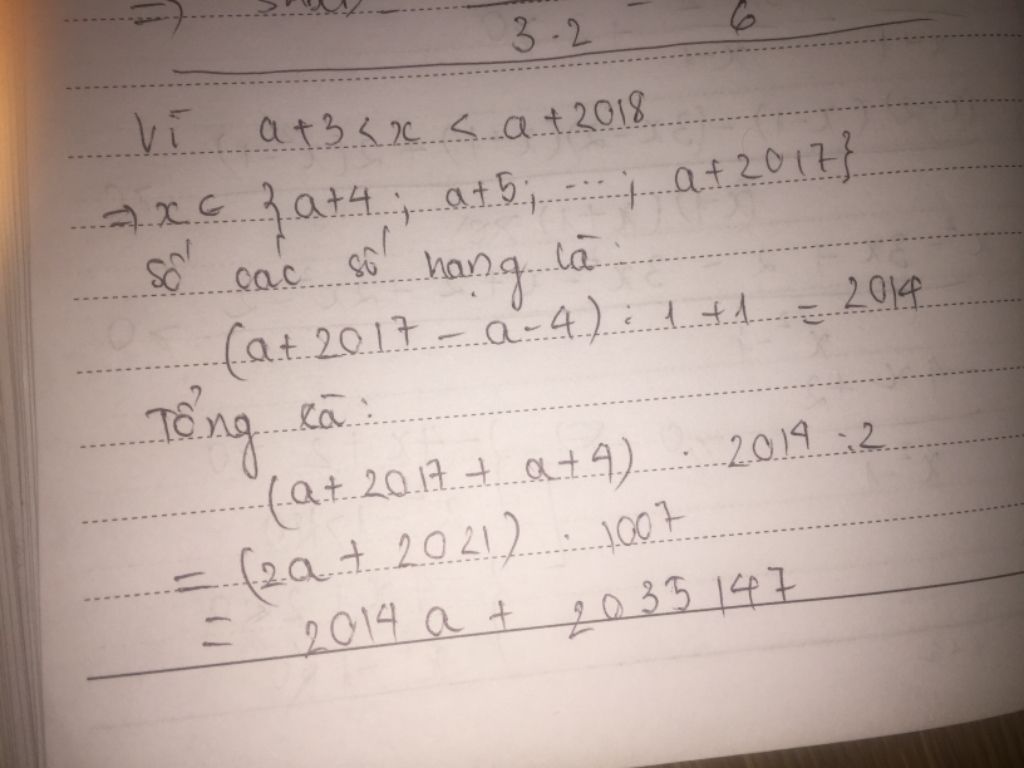 3.2 6
Vì a+3 < x < a+2018
⇒ x ∈ {a+4; a+5; ...; a+2017}
số các số hạng là:
(a+2017 - a-4) : 1 +1 = 2014
Tổng là:
(a+2017 + a+4) . 2014 :2
= (2a + 2021) . 1007
= 2014a + 2035147